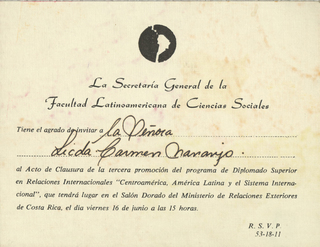 La Secretaría General de la
Facultad Latinoamericana de Ciencias Sociales
Tiene el agrado de invitar a la Señora
Licda. Carmen Naranjo.
al Acto de Clausura de la tercera promoción del programa de Diplomado Superior
en Relaciones Internacionales "Centroamérica, América Latina y el Sistema Interna-
cional", que tendrá lugar en el Salón Dorado del Ministerio de Relaciones Exteriores
de Costa Rica, el día viernes 16 de junio a las 15 horas.
R. S. V. P.
53-18-11